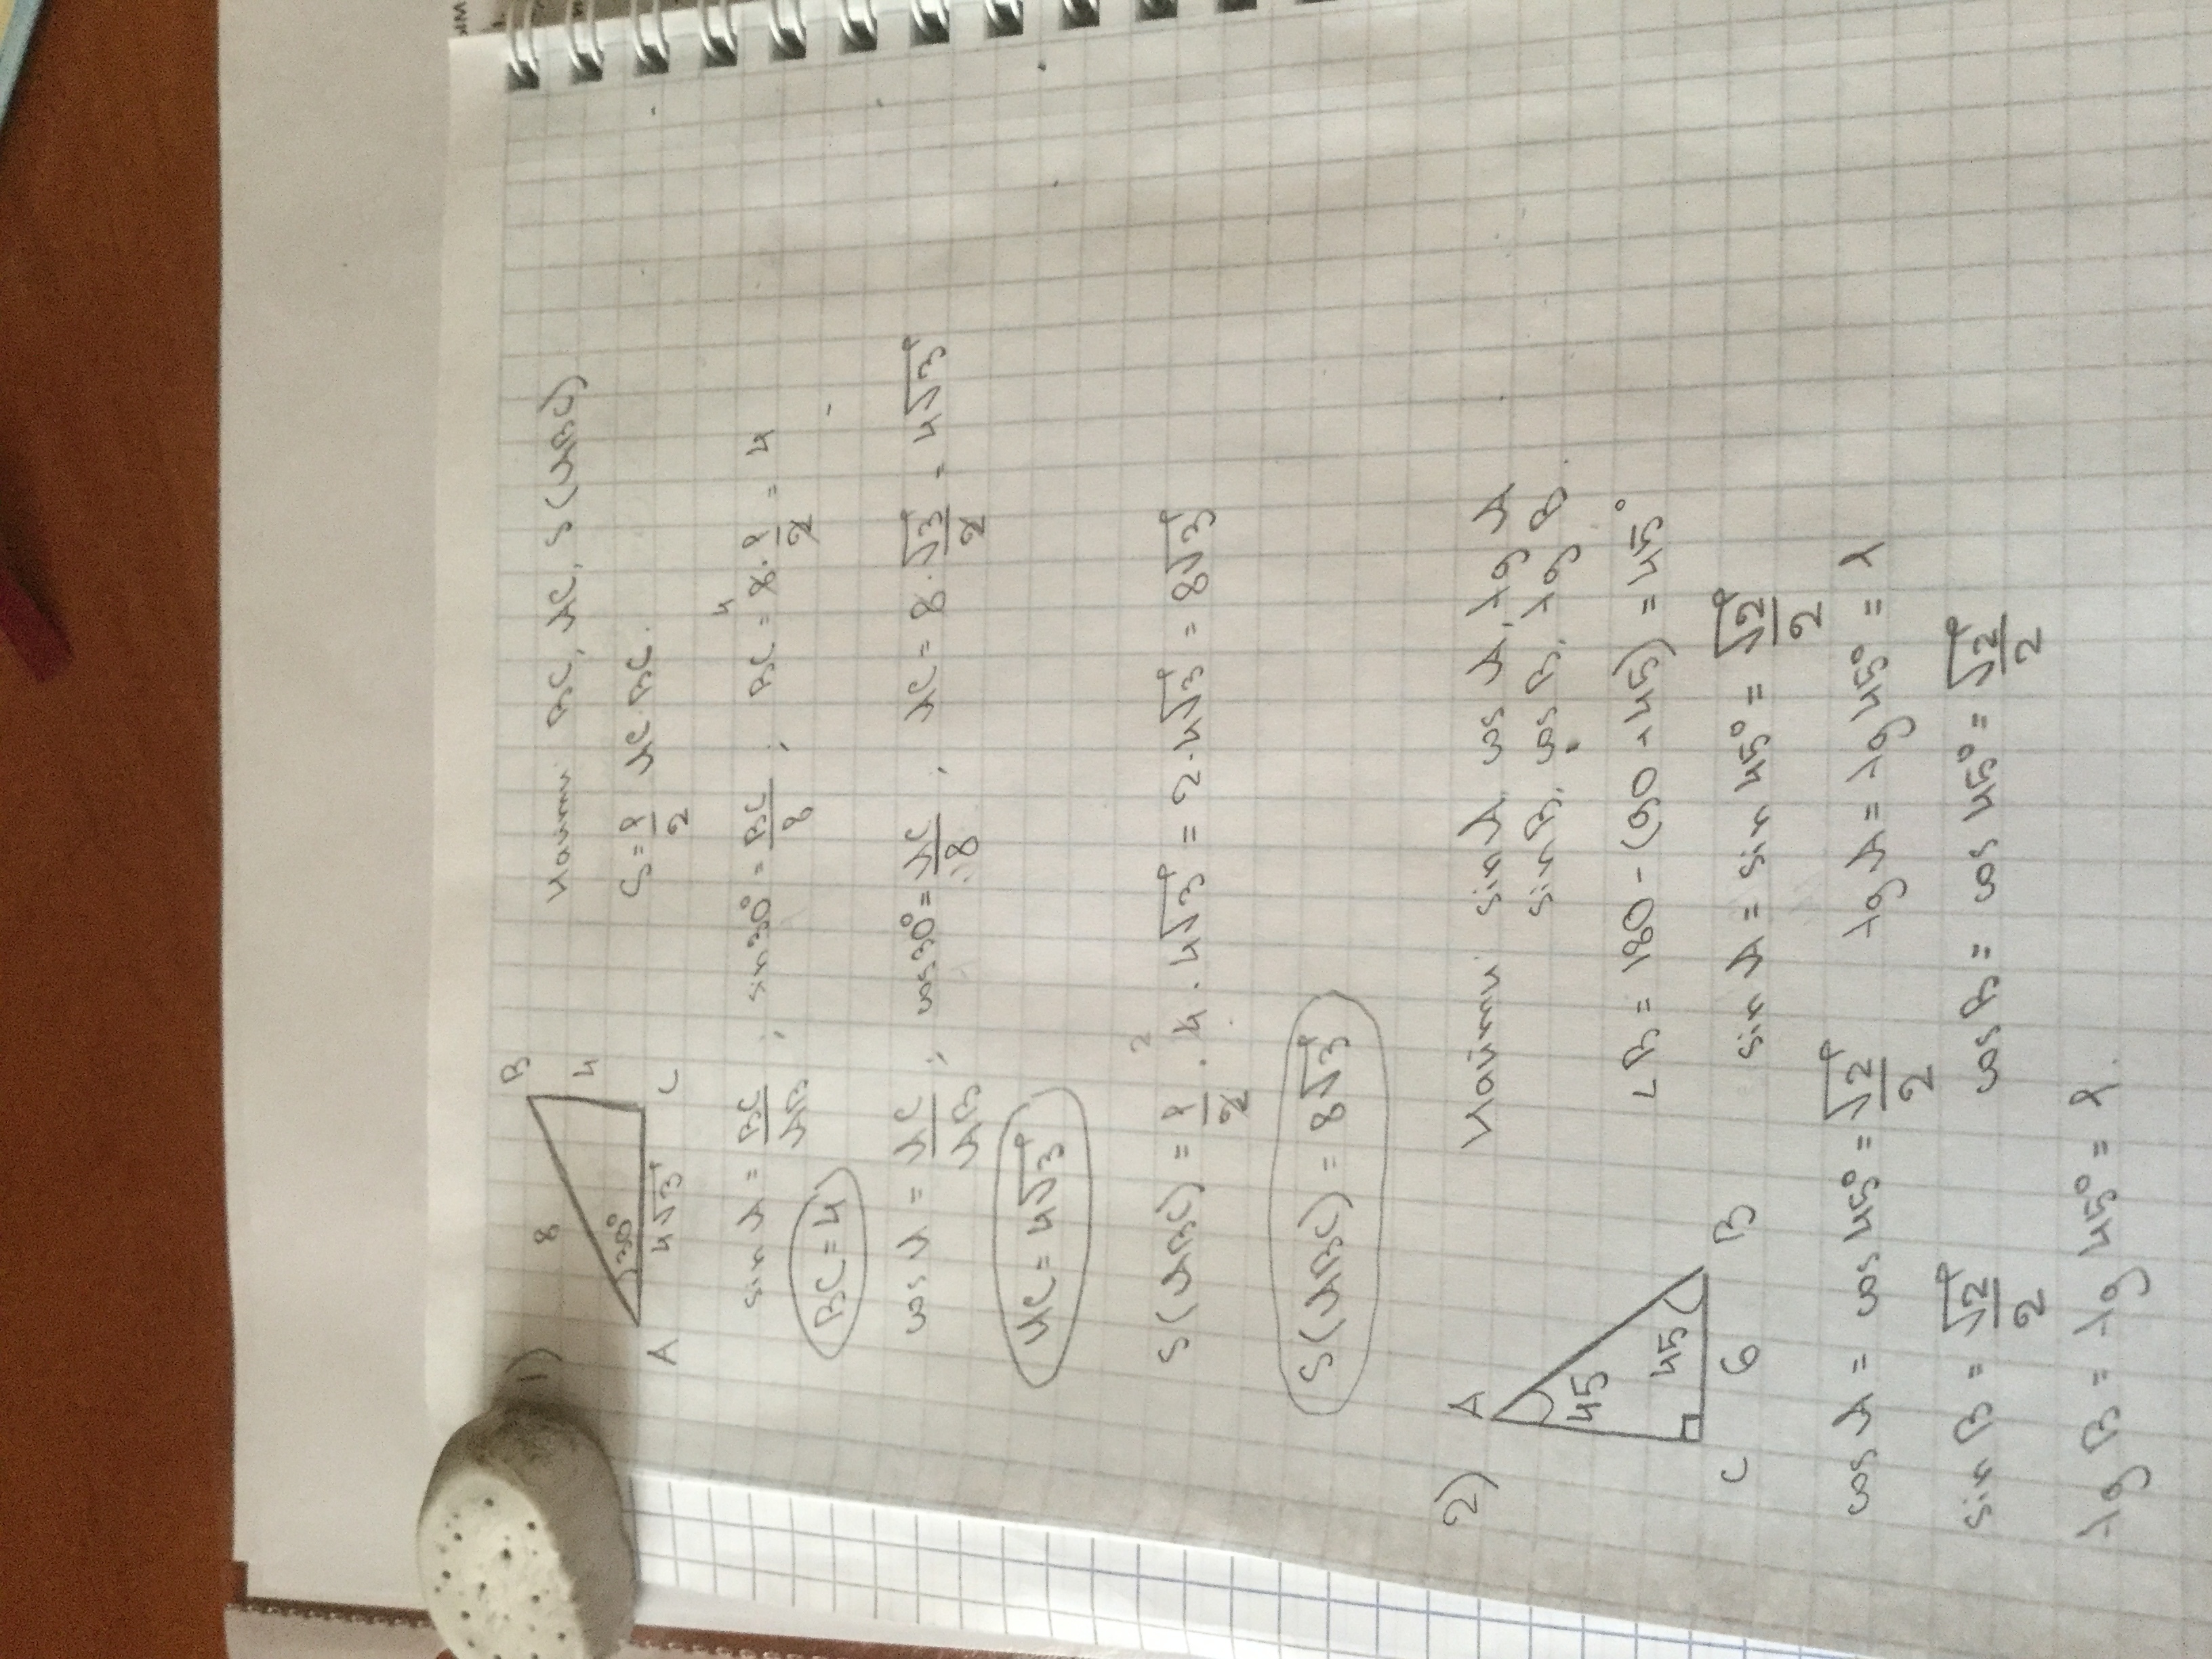 1)
B
8
4
30°
A
4√3
C
Найти BC, AC, S(ABC)
S = 1/2 AC·BC.
sin A = BC/AB ; sin30° = BC/8 ; BC = 8·1/2 = 4
4
BC = 4
cos A = AC/AB ; cos30° = AC/8 ; AC = 8·√3/2 = 4√3
AC = 4√3
S(ABC) = 1/2 · 4 · 4√3 = 2·4√3 = 8√3
2
S(ABC) = 8√3
2)
A
45
45
C
6
B
Найти sin A, cos A, tg A
sin B, cos B, tg B.
∠B = 180 - (90 + 45) = 45°
sin A = sin 45° = √2/2
cos A = cos 45° = √2/2 tg A = tg 45° = 1
sin B = √2/2 cos B = cos 45° = √2/2
tg B = tg 45° = 1.